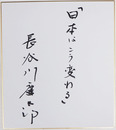 「日本はこう変わる」
長谷川慶太郎